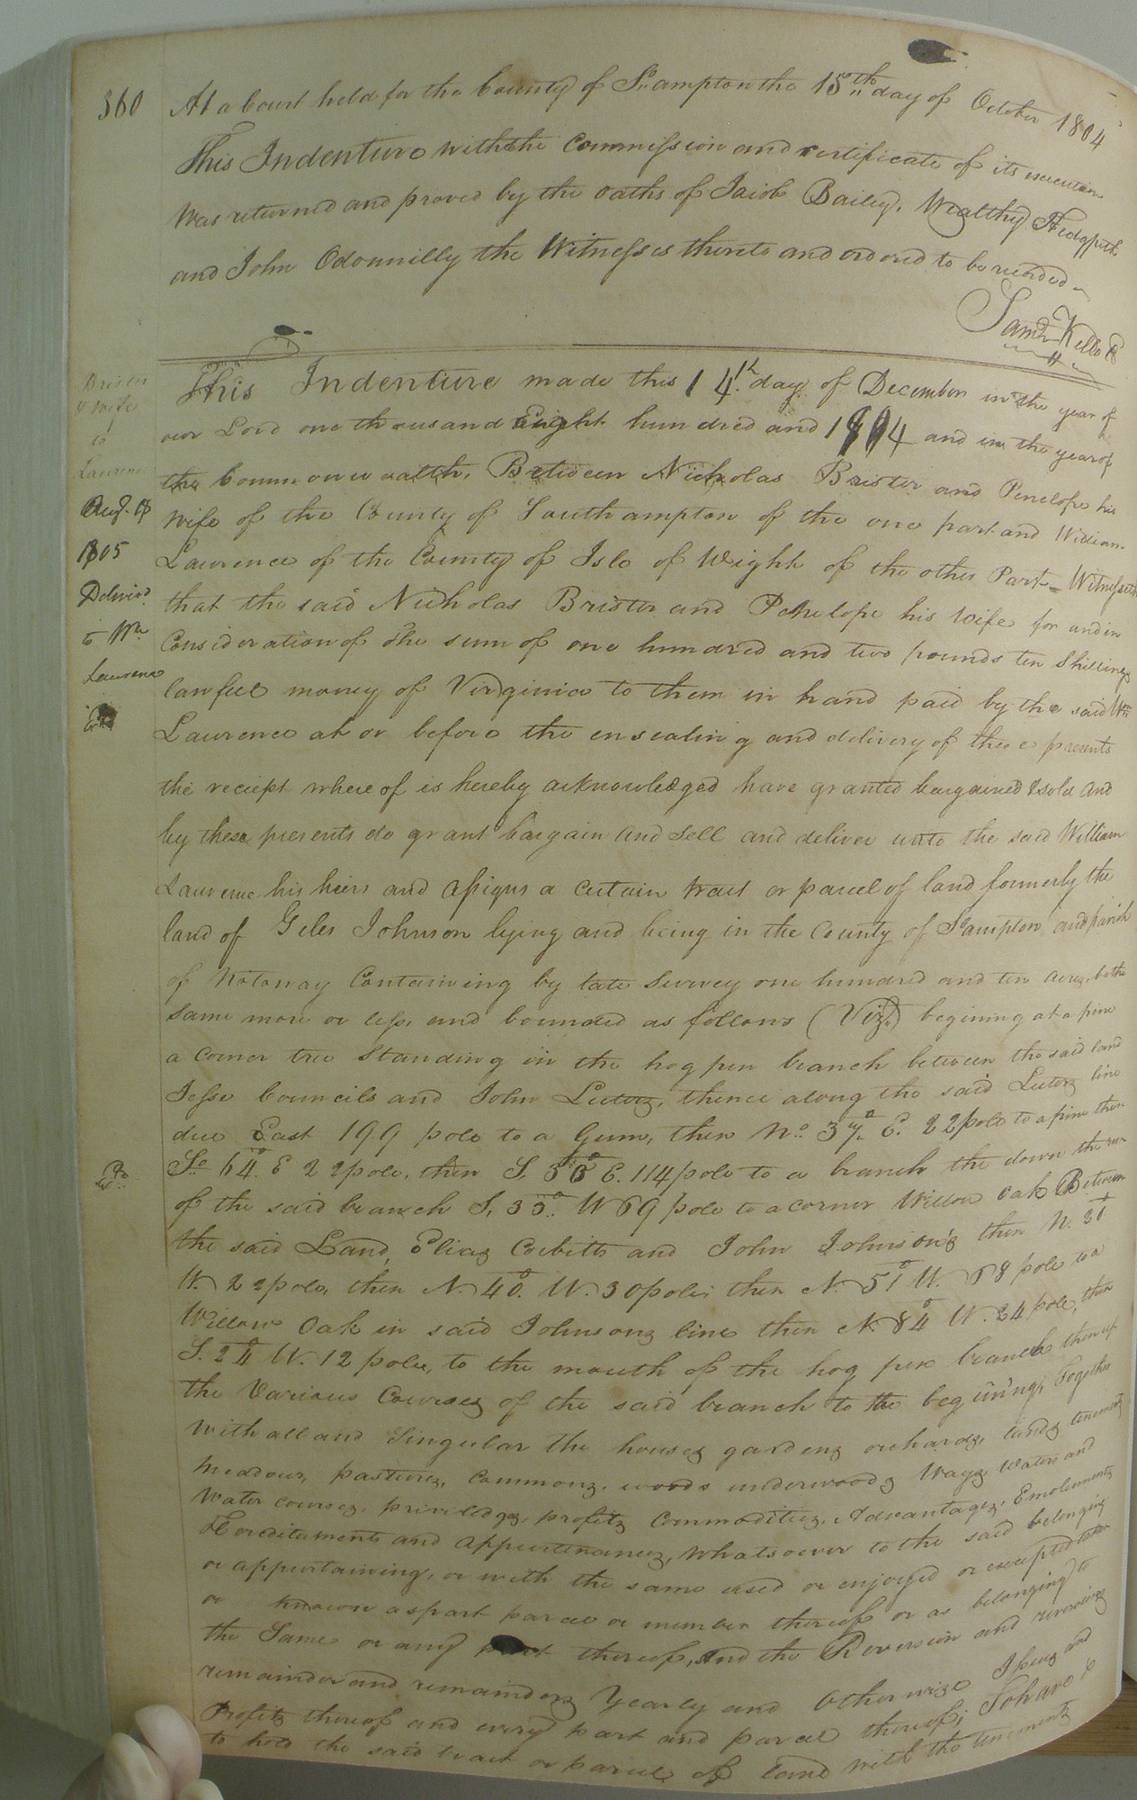 360
At a Court held for the County of So.ampton the 15th day of October 1804
This Indenture with the Commission and certificate of its execution
was returned and proved by the oaths of Jacob Bailey, Wealthy Hedgpeth
and John Odonnilly the Witnesses thereto and ordered to be recorded
Saml. Kello C
Brister
& wife
to
Lawrence
Augt. 
1805
Deliverd.
to Wm
Lawrence
Exd
This Indenture made this 14th. day of December in the year of
our Lord one thousand Eight hundred and 1804 and in the year of
the Commonwealth, Between Nicholas Brister and Penelope his
wife of the County of Southampton of the one part and William
Lawrence of the County of Isle of Wight of the other Part Witnesseth
that the said Nicholas Brister and Penelope his wife for and in
Consideration of the sum of one hundred and two pounds ten Shillings
lawfull money of Virginia to them in hand paid by the said Wm
Lawrence at or before the ensealing and delivery of these presents
the reciept where of is hereby acknowledged have granted bargained & sold and
by these presents do grant bargain and sell and deliver unto the said William
Lawrence his heirs and assigns a certain tract or parcel of land formerly the
land of Giles Johnson lying and being in the County of So.ampton and parish
of Notoway Containing by late Survey one hundred and ten acres, be the
same more or less, and bounded as follows (Vizt) begining at a pine
a corner tree Standing in the hog pen branch between the said land
Jesse Councils and John Luters, thence along the said Luters line
due East 199 pole to a Gum, then No. 37o. E. 22 pole to a pine then
So. 64o. E 22 pole, then S. 56o E. 114 pole to a branch the down the run
of the said branch S. 35o. W 69 pole to a corner Willow Oak Between
the said Land, Elias Corbitts and John Johnson's then N. 31
W. 22 pole, then N. 40o. W. 30 pole; then N. 51o W. 68 pole to a
Willow Oak in said Johnsons line then N. 84o W. 24 pole, then
S. 24o W. 12 pole, to the mouth of the hog pen branch then up
the Various Courses of the said branch to the begining, Together
with all and Singular the houses gardens orchards, lands tenements
meadows, pastures, commons, woods underwoods Ways waters and
Water courses, priviledges, profits Commodities, Advantages, Emoluments
Hereditaments and Appurtenances, whatsoever to the said belonging
or appertaining, or with the same used or enjoyed or excepted taken
or known as part parcel or member thereof or as belonging to
the Same or any part thereof, and the Reversion and reversions
remainder and remainders Yearly and Otherwise Issues and
Profits thereof and every part and parcel thereof; To have &
to hold the said tract or parcel of land with the tenements